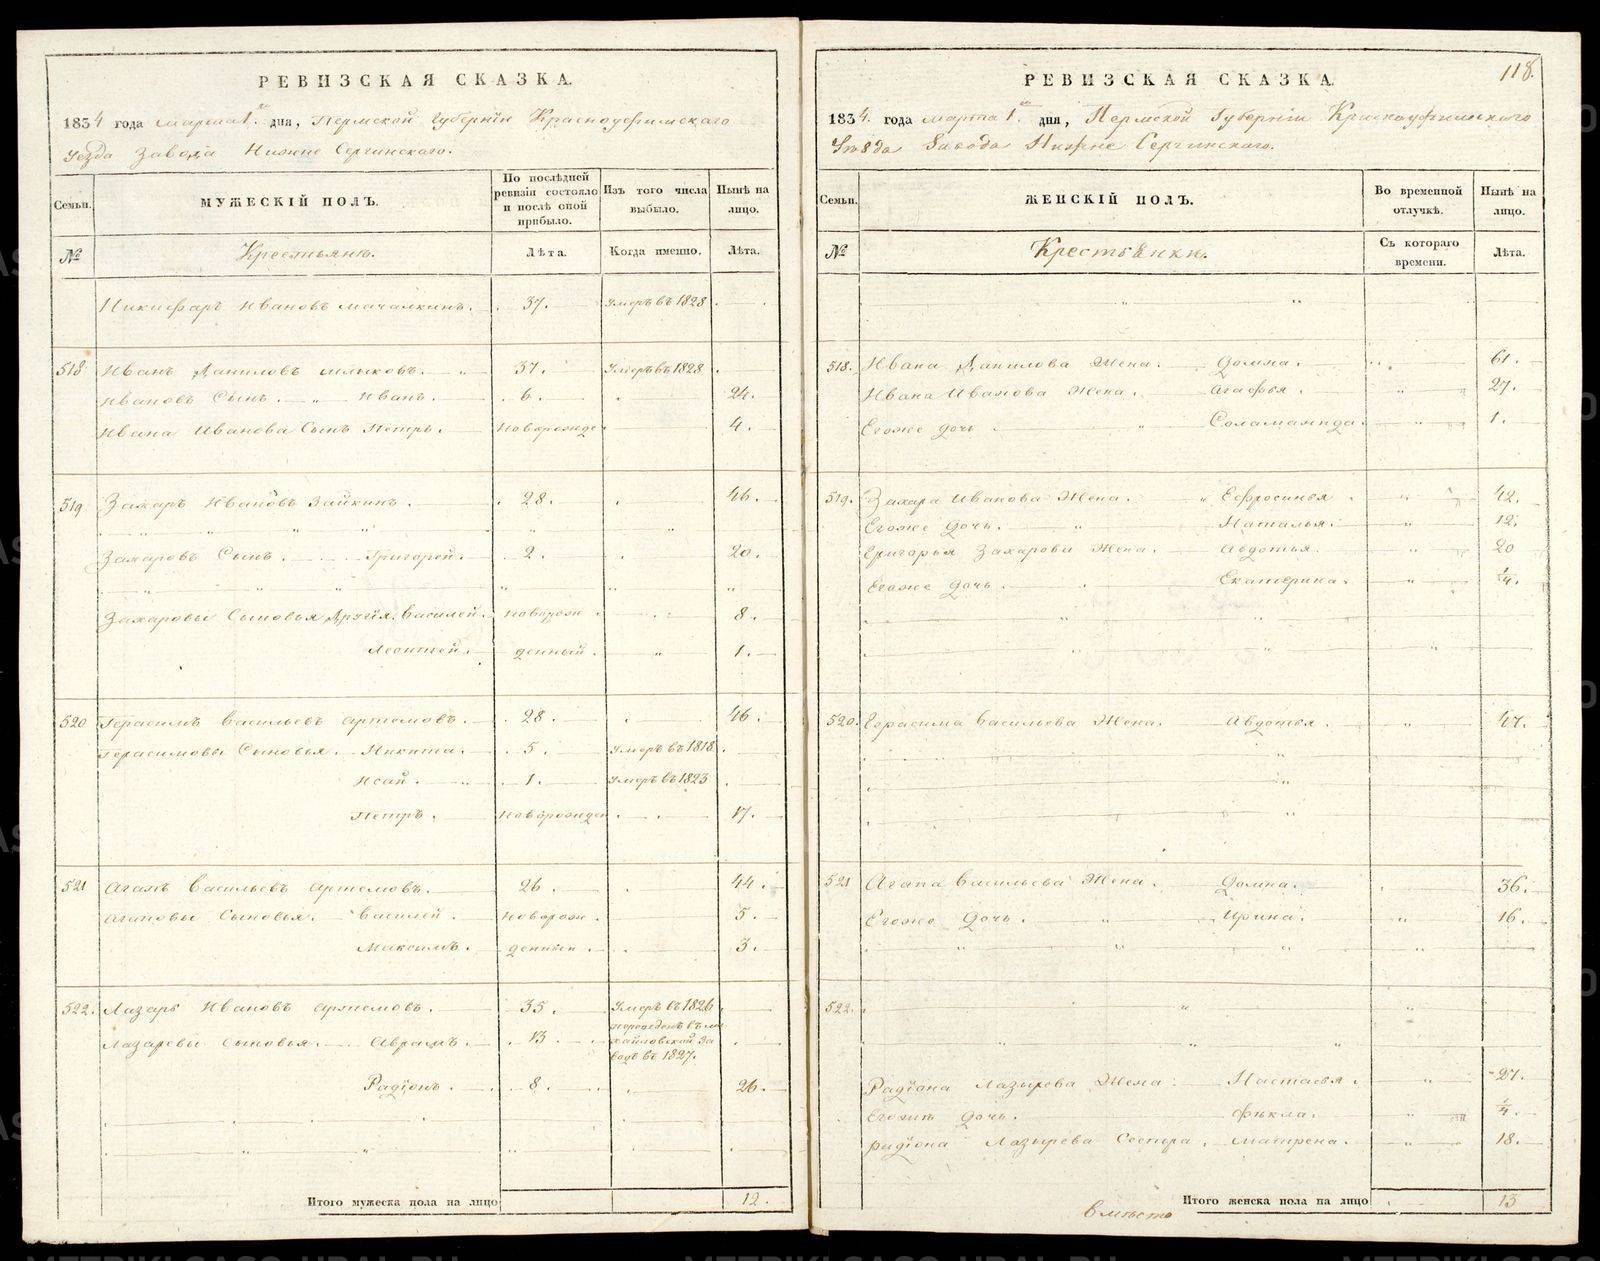 РЕВИЗСКАЯ СКАЗКА.
1834 года марта 1. дня, Пермской Губернїи Красноуфимского
Уезда Завода Нижне Сергинскаго.
Семьи.
МУЖЕСКІЙ ПОЛЪ.
По послѣдней ревизіи состояло и послѣ оной прибыло.
Изъ того числа выбыло.
Нынѣ на лицо.
№
Крестьянѣ.
Лѣта.
Когда именно.
Лѣта.
Никифаръ Ивановъ Мачалкинъ. 37. Умеръ въ 1828
518 Иванъ Даниловъ 37. Умеръ въ 1828
Ивановъ Сынъ. Иванъ. 6. 24.
Ивана Иванова Сынъ Петръ. Новорожде 4.
519 Захаръ Ивановъ Зайкинъ. 28. 46.
Захаровъ Сынъ. Григорей. 2. 20.
Захаровы Сыновья Другїя. Василей. Новорож 8.
Леонтей. денный. 1.
520 Герасимъ Васильевъ Артемовъ. 28. 46.
Герасимовы Сыновья. Никита. 5. Умеръ въ 1818
Исай. 1. Умеръ въ 1823
Петръ. Новорожден 17.
521 Агапъ Васильевъ Артемовъ. 26. 44.
Агаповы Сыновья. Василей. Новорож. 5.
Максимъ. денныи. 3.
522. Лазарь Ивановъ Артемовъ. 35. Умеръ въ 1826
Лазаревы Сыновья. Аврамъ. 13. переведенъ въ Михайловской Заводъ въ 1827.
Радїонъ. 8. 26.
Итого мужеска пола на лицо 12.
118.
РЕВИЗСКАЯ СКАЗКА.
1834. года марта 1. дня, Пермской Губернїи Красноуфимского
Уѣзда Завода Нижне Сергинскаго.
Семьи.
ЖЕНСКІЙ ПОЛЪ.
Во временной отлучкѣ.
Нынѣ на лицо.
№
Крестьянки.
Съ котораго времени.
Лѣта.
518. Ивана Данилова Жена. Домна. 61.
Ивана Иванова Жена. Агафья. 27.
Егоже дочь Соламанида. 1.
519. Захара Иванова Жена. Ефросинья. 42.
Егоже дочь. Наталья. 12.
Григорья Захарова Жена. Авдотья. 20
Егоже дочь. Екатерина. 1/4.
520. Герасима Васильева Жена. Авдотья. 47.
521 Агапа Васильева Жена. Домна. 36.
Егоже Дочь. Ирина. 16.
522.
Радїона Лазырева Жена. Настасья. 27.
Егожъ дочь. Фѣкла. 1/4.
Радїона Лазырева Сестра. Матрена. 18.
Итого женска пола на лицо 13
вмѣсто
METRIKI.GASO-URAL.RU